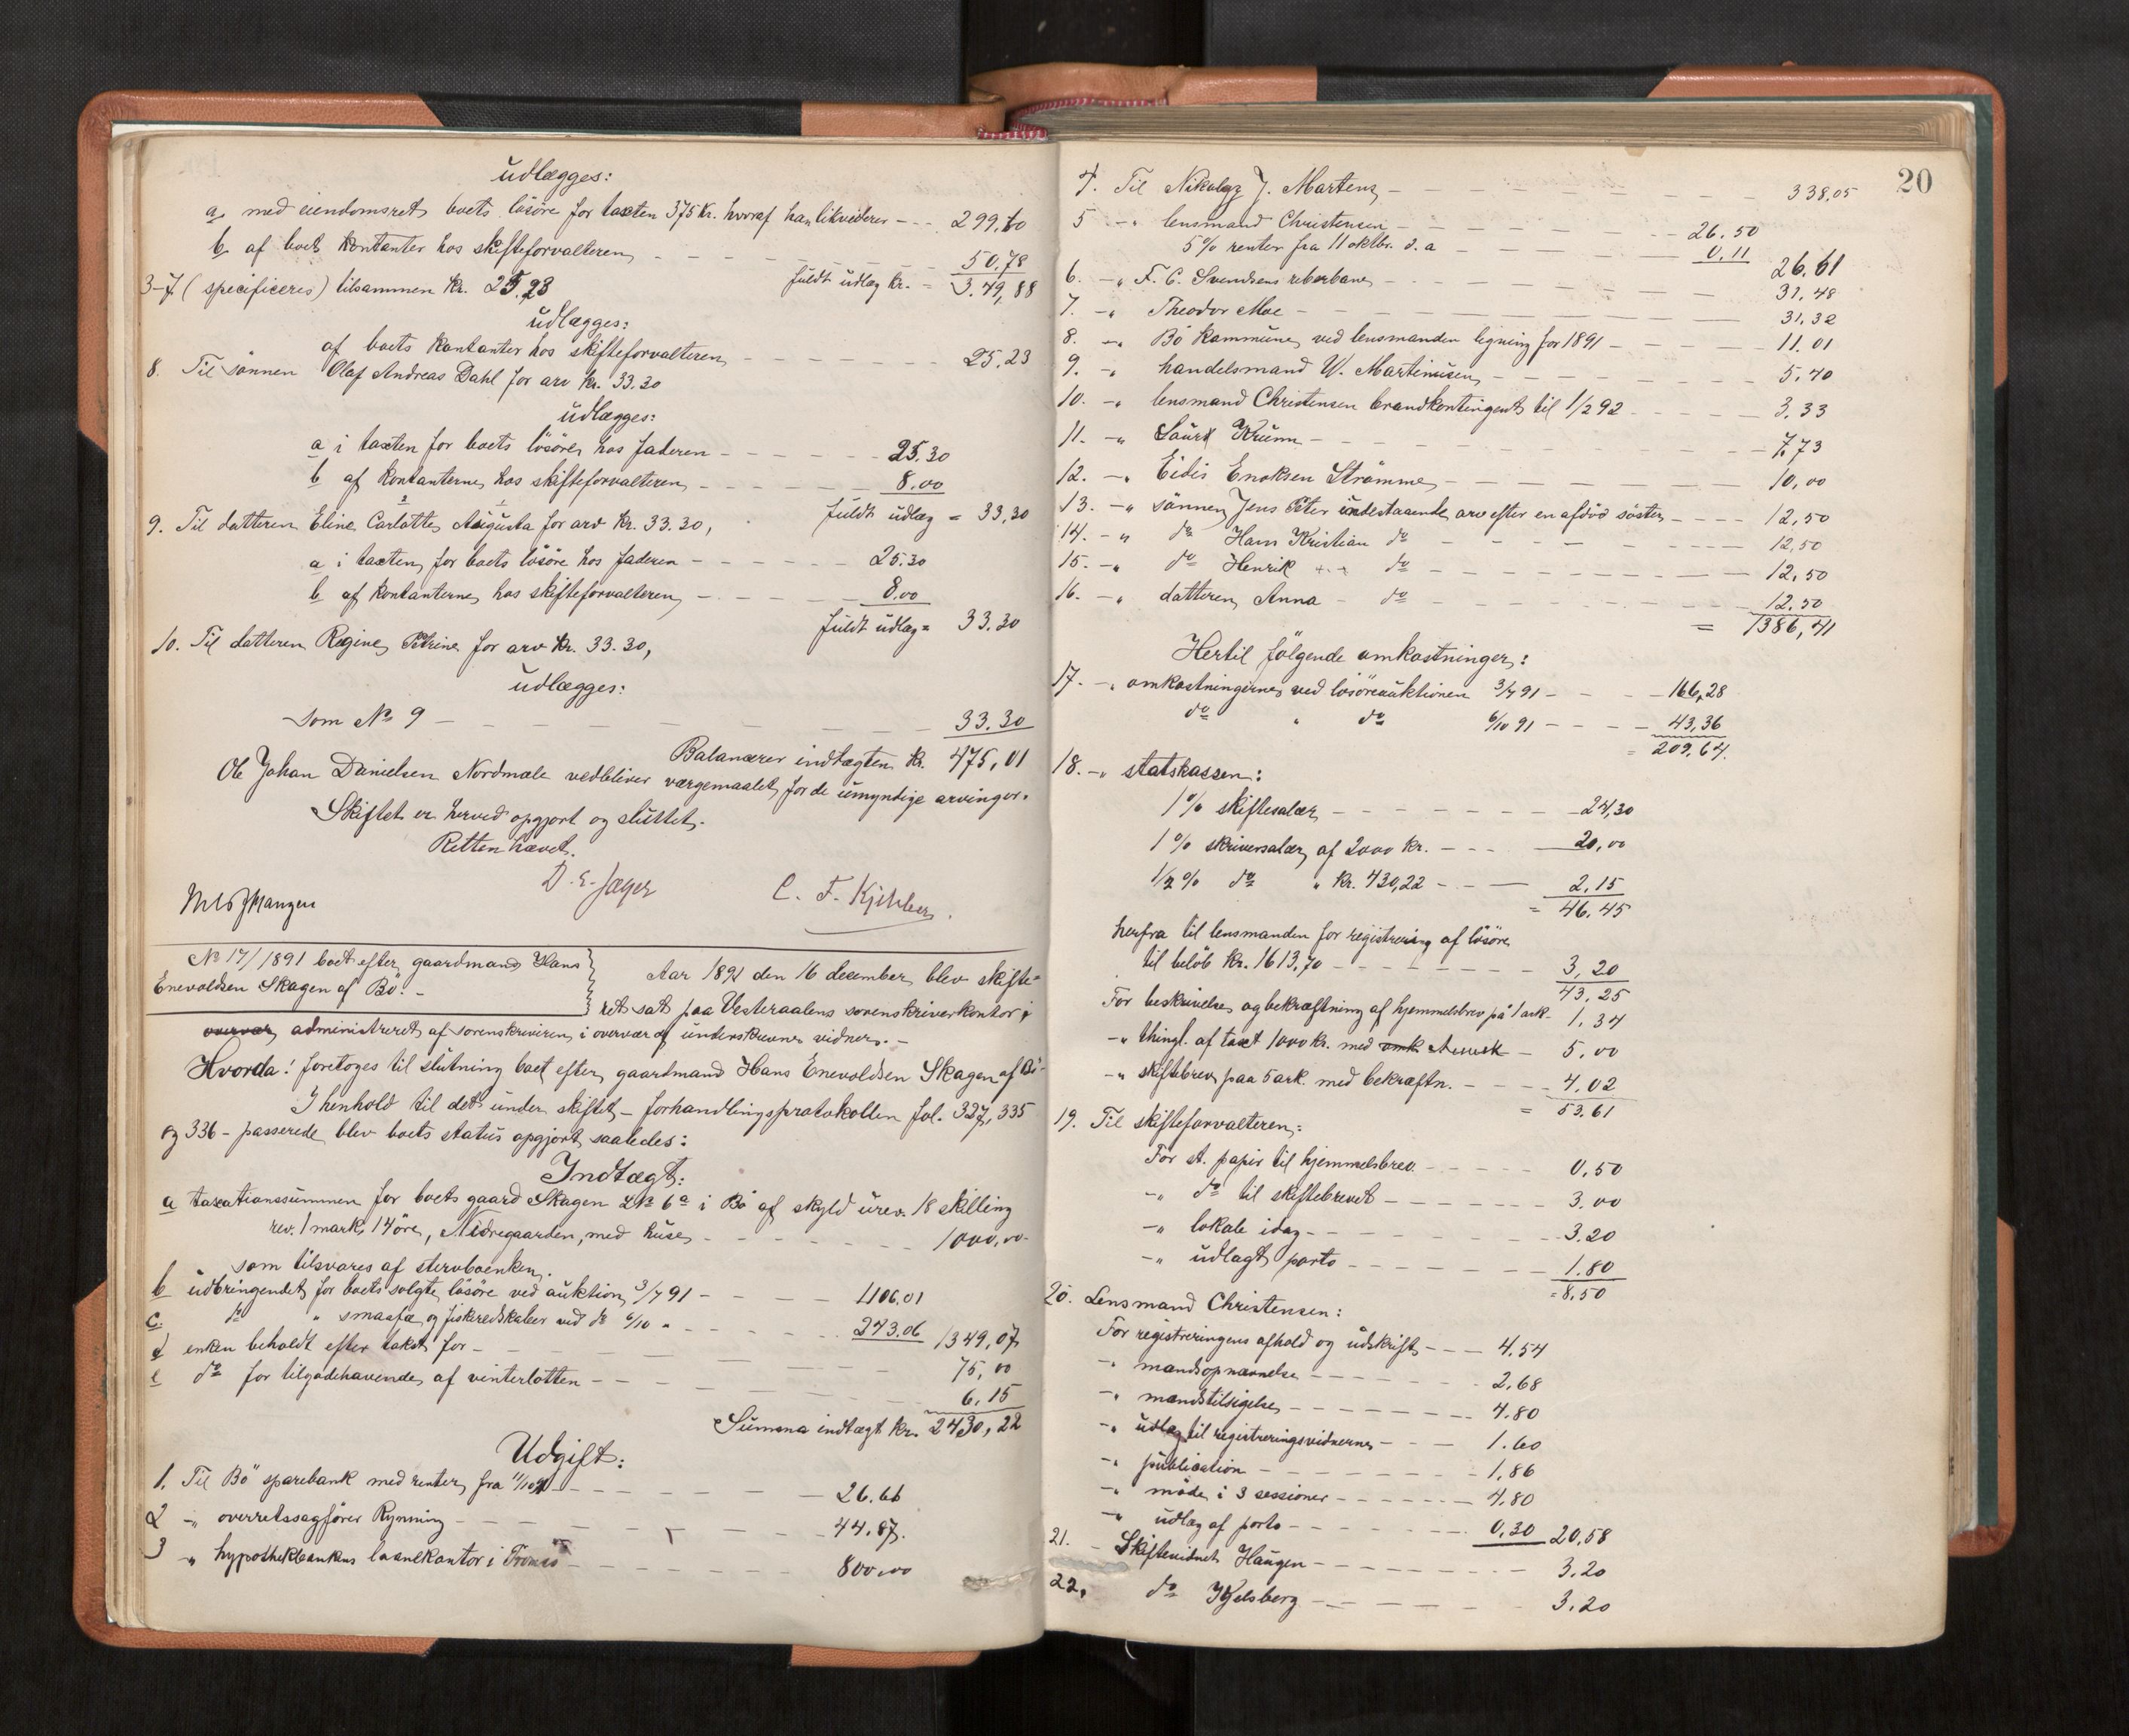 udlægges:
a med eiendomsret boets løsøre for taxten 375 kr. hvoraf han likviderer - - - 299,10
b af boets kontanter hos skifteforvalteren - - - 50,78
fuldt udlæg kr. - 349,88
3-7 (specificeres) tilsammen kr. 25,23
udlægges:
af boets kontanter hos skifteforvalteren - - - 25,23
8. Til sønnen Olaf Andreas Dahl for arv kr. 33.30
udlægges:
a i taxten for boets løsøre hos faderen - - - 25.30
b af kontanterne hos skifteforvalteren - - - 8.00
fuldt udlæg = 33,30
9. Til datteren Eline Carlotte Augusta for arv kr. 33.30,
a i taxten for boets løsøre hos faderen - - - 25.30
b af kontanterne hos skifteforvalteren - - - 8.00
fuldt udlæg = 33.30
10. Til datteren Regine Petrine for arv kr. 33.30,
udlægges:
som No 9 - - - 33.30
Balancerer indtægten kr. 475,01
Ole Johan Danielsen Nordmæle vedbliver værgemaalet for de umyndige arvinger.
Skiftet er herved opgjort og sluttet.
Retten hævet.
D. E. Jæger C. F. Kjelsberg.
No 17/1891 boet efter gaardmand Hans
Enevoldsen Skagen af Bø. -
Aar 1891 den 16 december blev skifte=
ret sat paa Vesteraalens sorenskriverkontor i
overvær administreret af sorenskriveren i overvær af underskrevne vidner. -
Hvorda: foretoges til slutning boet efter gaardmand Hans Enevoldsen Skagen af Bø -
I henhold til det under skiftet - forhandlingsprotokollen fol. 327, 335
og 336 - passerede blev boets status opgjort saaledes:
Indtægt:
a taxationssummen for boets gaard Skagen LNo 6a i Bø af skyld urev. 18 skilling
rev. 1 mark 14 øre, Nedregaarden, med huse - - - 1000,00
som tilsvares af stervboenken.
b udbringendet for boets solgte løsøre ved auktion 3/7 91 - - - 1106,01
c. do " smaafæ og fiskeredskaber ved do 6/10 " - - - 243.06 1349,07
d enken beholdt efter takst for - - - 75,00
e do for tilgodehavende af vinterlotten - - - 6,15
Summa indtægt kr. 2430,22
Udgift:
1. Til Bø sparebank med renter fra 11/10 91 - - - 26.66
2 -" overretssagfører Rynning - - - 44,87.
3 " hypothekbankens laanekontor i Tromsø - - - 800,00
20
4. Til Nikolay J. Martens - - - 338,05
5 -" lensmand Christensen - - - 26.50
5% renter fra 11 oktbr. d. a - - - 0.11 26,61
6. -" F. C. Svendsens reberbane - - - 31,48
7. -" Theodor Moe - - - 31,32
8. -" Bø kommune ved lensmanden ligning for 1891 - - - 11.01
9. -" handelsmand W. Martinusen - - - 5,40
10. -" lensmand Christensen brandkontingent til 1/2 92 - - - 3,33
11. -" Krumm - - - 7,73
12. -" Eidis Enoksen Strømme - - - 10,00
13. -" sønnen Jens Peter indestaaende arv efter en afdød søster - - - 12,50
14. -" do Hans Kristian do - - - 12,50
15. -" do Henrik do - - - 12,50
16. -" datteren Anna - do - - - 12.50
= 1386,41
Hertil følgende omkostninger:
17. -" omkostningerne ved løsøreauktionen 3/7 91 - - - 166,28
do " do 6/10 91 - - - 43,36
= 209,64.
18. -" statskassen:
1% skiftesalær - - - 24,30
1% skriversalær af 2000 kr. - - - 20,00
1/2% do " kr. 430,22 - - - 2,15
= 46,45
herfra til lensmanden for registrering af løsøre
til beløb kr. 1613,70 - - - 3,20
43,25
For beskrivelse og bekræftning af hjemmelsbrev på 1 ark - 1,34
-" thingl. af taxt 1000 kr. med - 5,00
-" skiftebrev paa 5 ark. med bekræftn. - - - 4,02
= 53.61
19. Til skifteforvalteren:
For st. papir til hjemmelsbrev - - - 0,50
-" do til skiftebrevet - - - 3,00
-" lokale idag - - - 3.20
-" udlagt porto - - - 1.80
= 8,50
20. Lensmand Christensen:
For registreringens afhold og udskrift - - - 4.54
-" mandsopnævnelse - - - 2,68
-" mandstilsigelse - - - 4.80
-" udlæg til registreringsvidnerne - - - 1.60
-" publication - - - 1,86
-" møde i 3 sessioner - - - 4.80
-" udlæg af porto - - - 0,30 20,58
21. - Skiftevidnet Haugen - - - 3.20
22. do Kjelsberg - - - 3.20